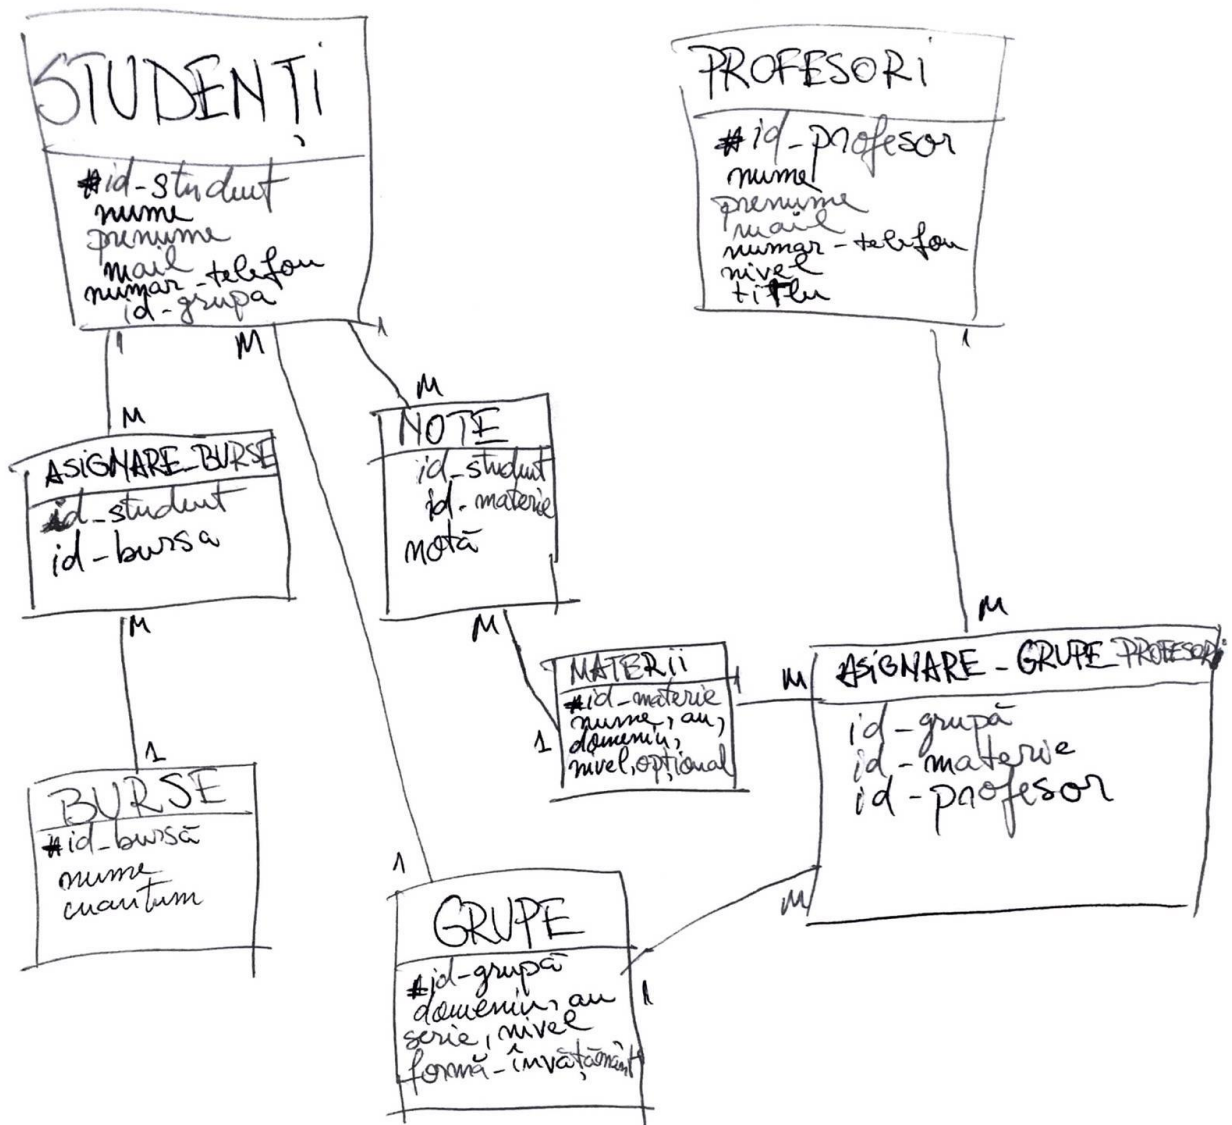 STUDENȚI
#id-student
nume
prenume
mail
numar-telefon
id-grupa
1
M
1
PROFESORI
#id-profesor
nume
prenume
mail
numar-telefon
nivel
titlu
1
M
ASIGNARE_BURSE
id_student
id-bursa
M
M
NOTE
id_student
id_materie
notă
M
1
BURSE
#id-bursă
nume
cuantum
1
MATERII
#id-materie
nume, an,
domeniu,
nivel, opțional
1
M
M
ASIGNARE-GRUPE_PROFESORI
id-grupă
id-materie
id-profesor
M
1
GRUPE
#id-grupă
domeniu, an
serie, nivel
formă-învățământ
1